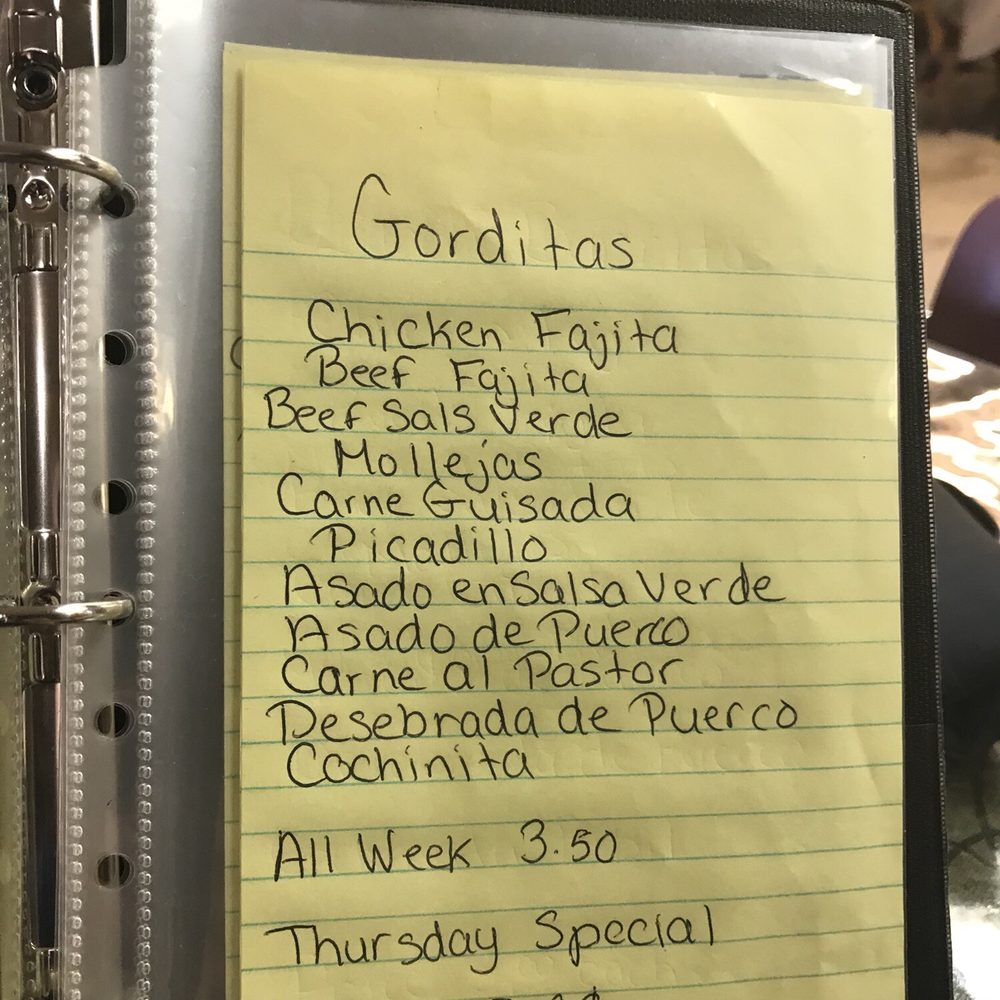 Gorditas
Chicken Fajita
Beef Fajita
Beef Sals Verde
Mollejas
Carne Guisada
Picadillo
Asado en Salsa Verde
Asado de Puerco
Carne al Pastor
Desebrada de Puerco
Cochinita
All Week 3.50
Thursday Special